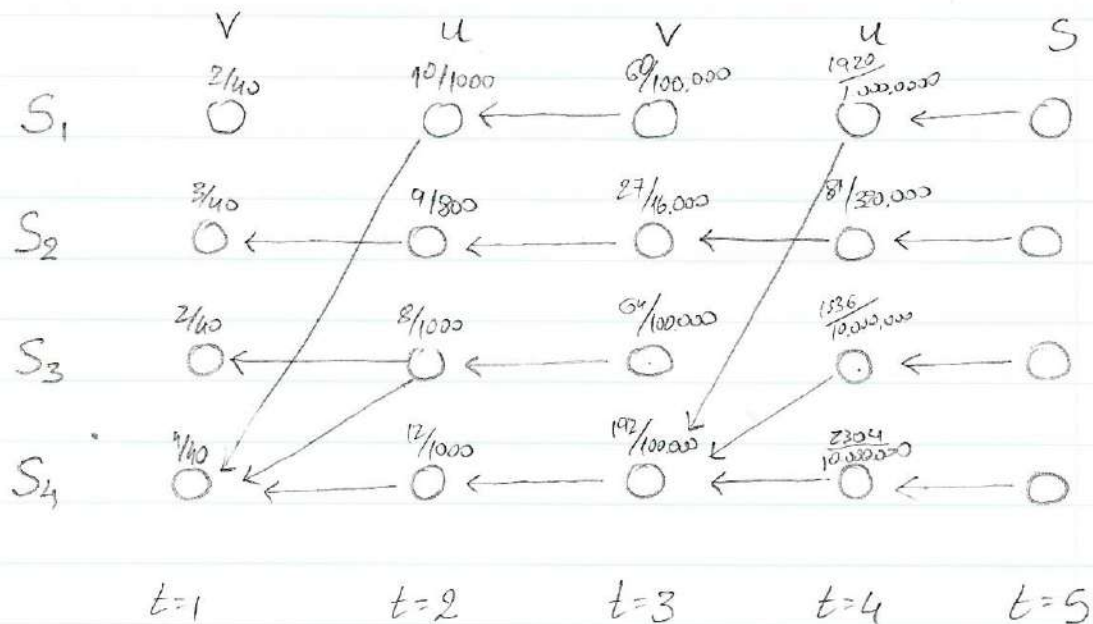 V u V u S
S1 2/40 10/1000 60/100,000 1920/1,000,0000
S2 3/40 9/800 27/16,000 81/320,000
S3 2/40 8/1000 64/100,000 1536/10,000,000
S4 4/40 12/1000 192/100,000 2304/10,000,000
t=1 t=2 t=3 t=4 t=5